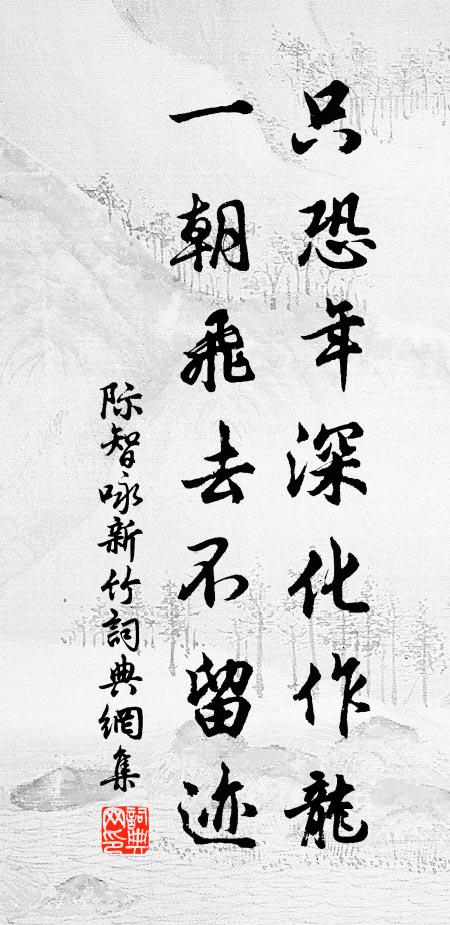 只恐年深化作龍
一朝飛去不留迹
际智咏新竹詞典網集
詞典网印